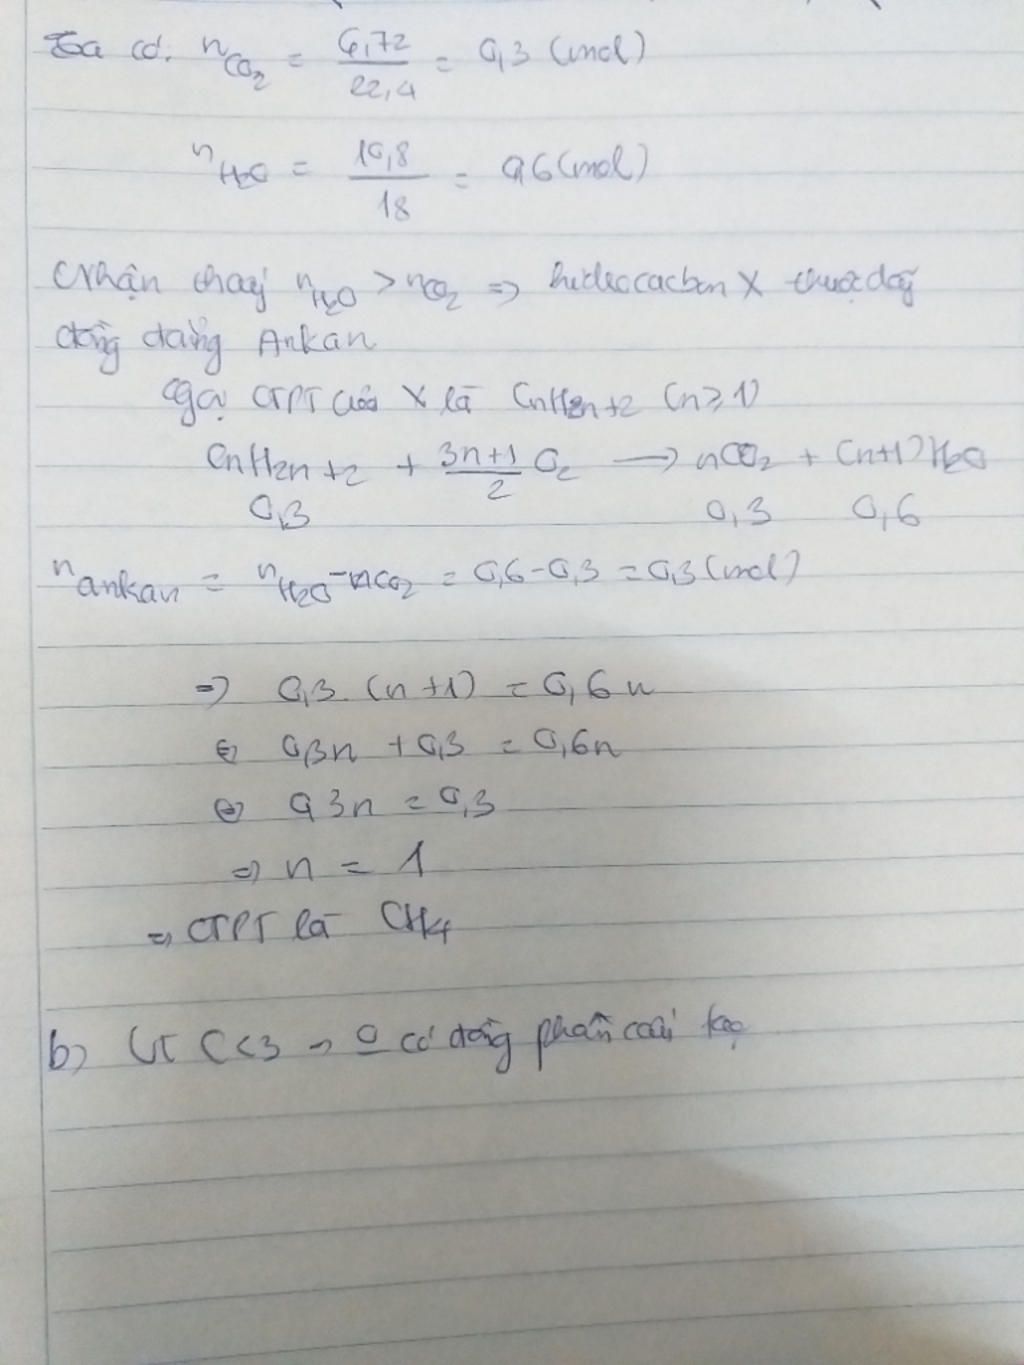 Ta có: nCO2 = 6,72/22,4 = 0,3 (mol)
nH2O = 10,8/18 = 0,6 (mol)
Nhận thấy nH2O > nCO2 => hidrocacbon X thuộc dãy
đồng đẳng Ankan
Gọi CTPT của X là CnH2n+2 (n≥1)
CnH2n+2 + (3n+1)/2 O2 → nCO2 + (n+1)H2O
0,3 0,3 0,6
nankan = nH2O - nCO2 = 0,6 - 0,3 = 0,3 (mol)
=> 0,3.(n+1) = 0,6n
<=> 0,3n + 0,3 = 0,6n
<=> 0,3n = 0,3
=> n = 1
=> CTPT là CH4
b) Vì C<3 → o có đồng phân cấu tạo